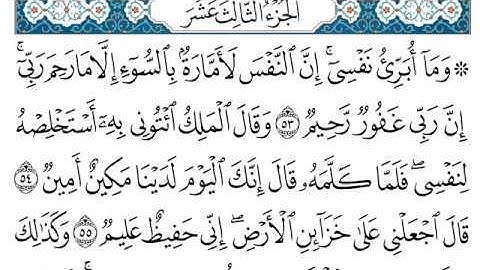 الجزء الثالث عشر
۞ وَمَآ أُبَرِّئُ نَفْسِىٓ ۚ إِنَّ ٱلنَّفْسَ لَأَمَّارَةٌۢ بِٱلسُّوٓءِ إِلَّا مَا رَحِمَ رَبِّىٓ ۚ
إِنَّ رَبِّى غَفُورٌ رَّحِيمٌ ٥٣ وَقَالَ ٱلْمَلِكُ ٱئْتُونِى بِهِۦٓ أَسْتَخْلِصْهُ
لِنَفْسِى ۖ فَلَمَّا كَلَّمَهُۥ قَالَ إِنَّكَ ٱلْيَوْمَ لَدَيْنَا مَكِينٌ أَمِينٌ ٥٤
قَالَ ٱجْعَلْنِى عَلَىٰ خَزَآئِنِ ٱلْأَرْضِ ۖ إِنِّى حَفِيظٌ عَلِيمٌ ٥٥ وَكَذَٰلِكَ